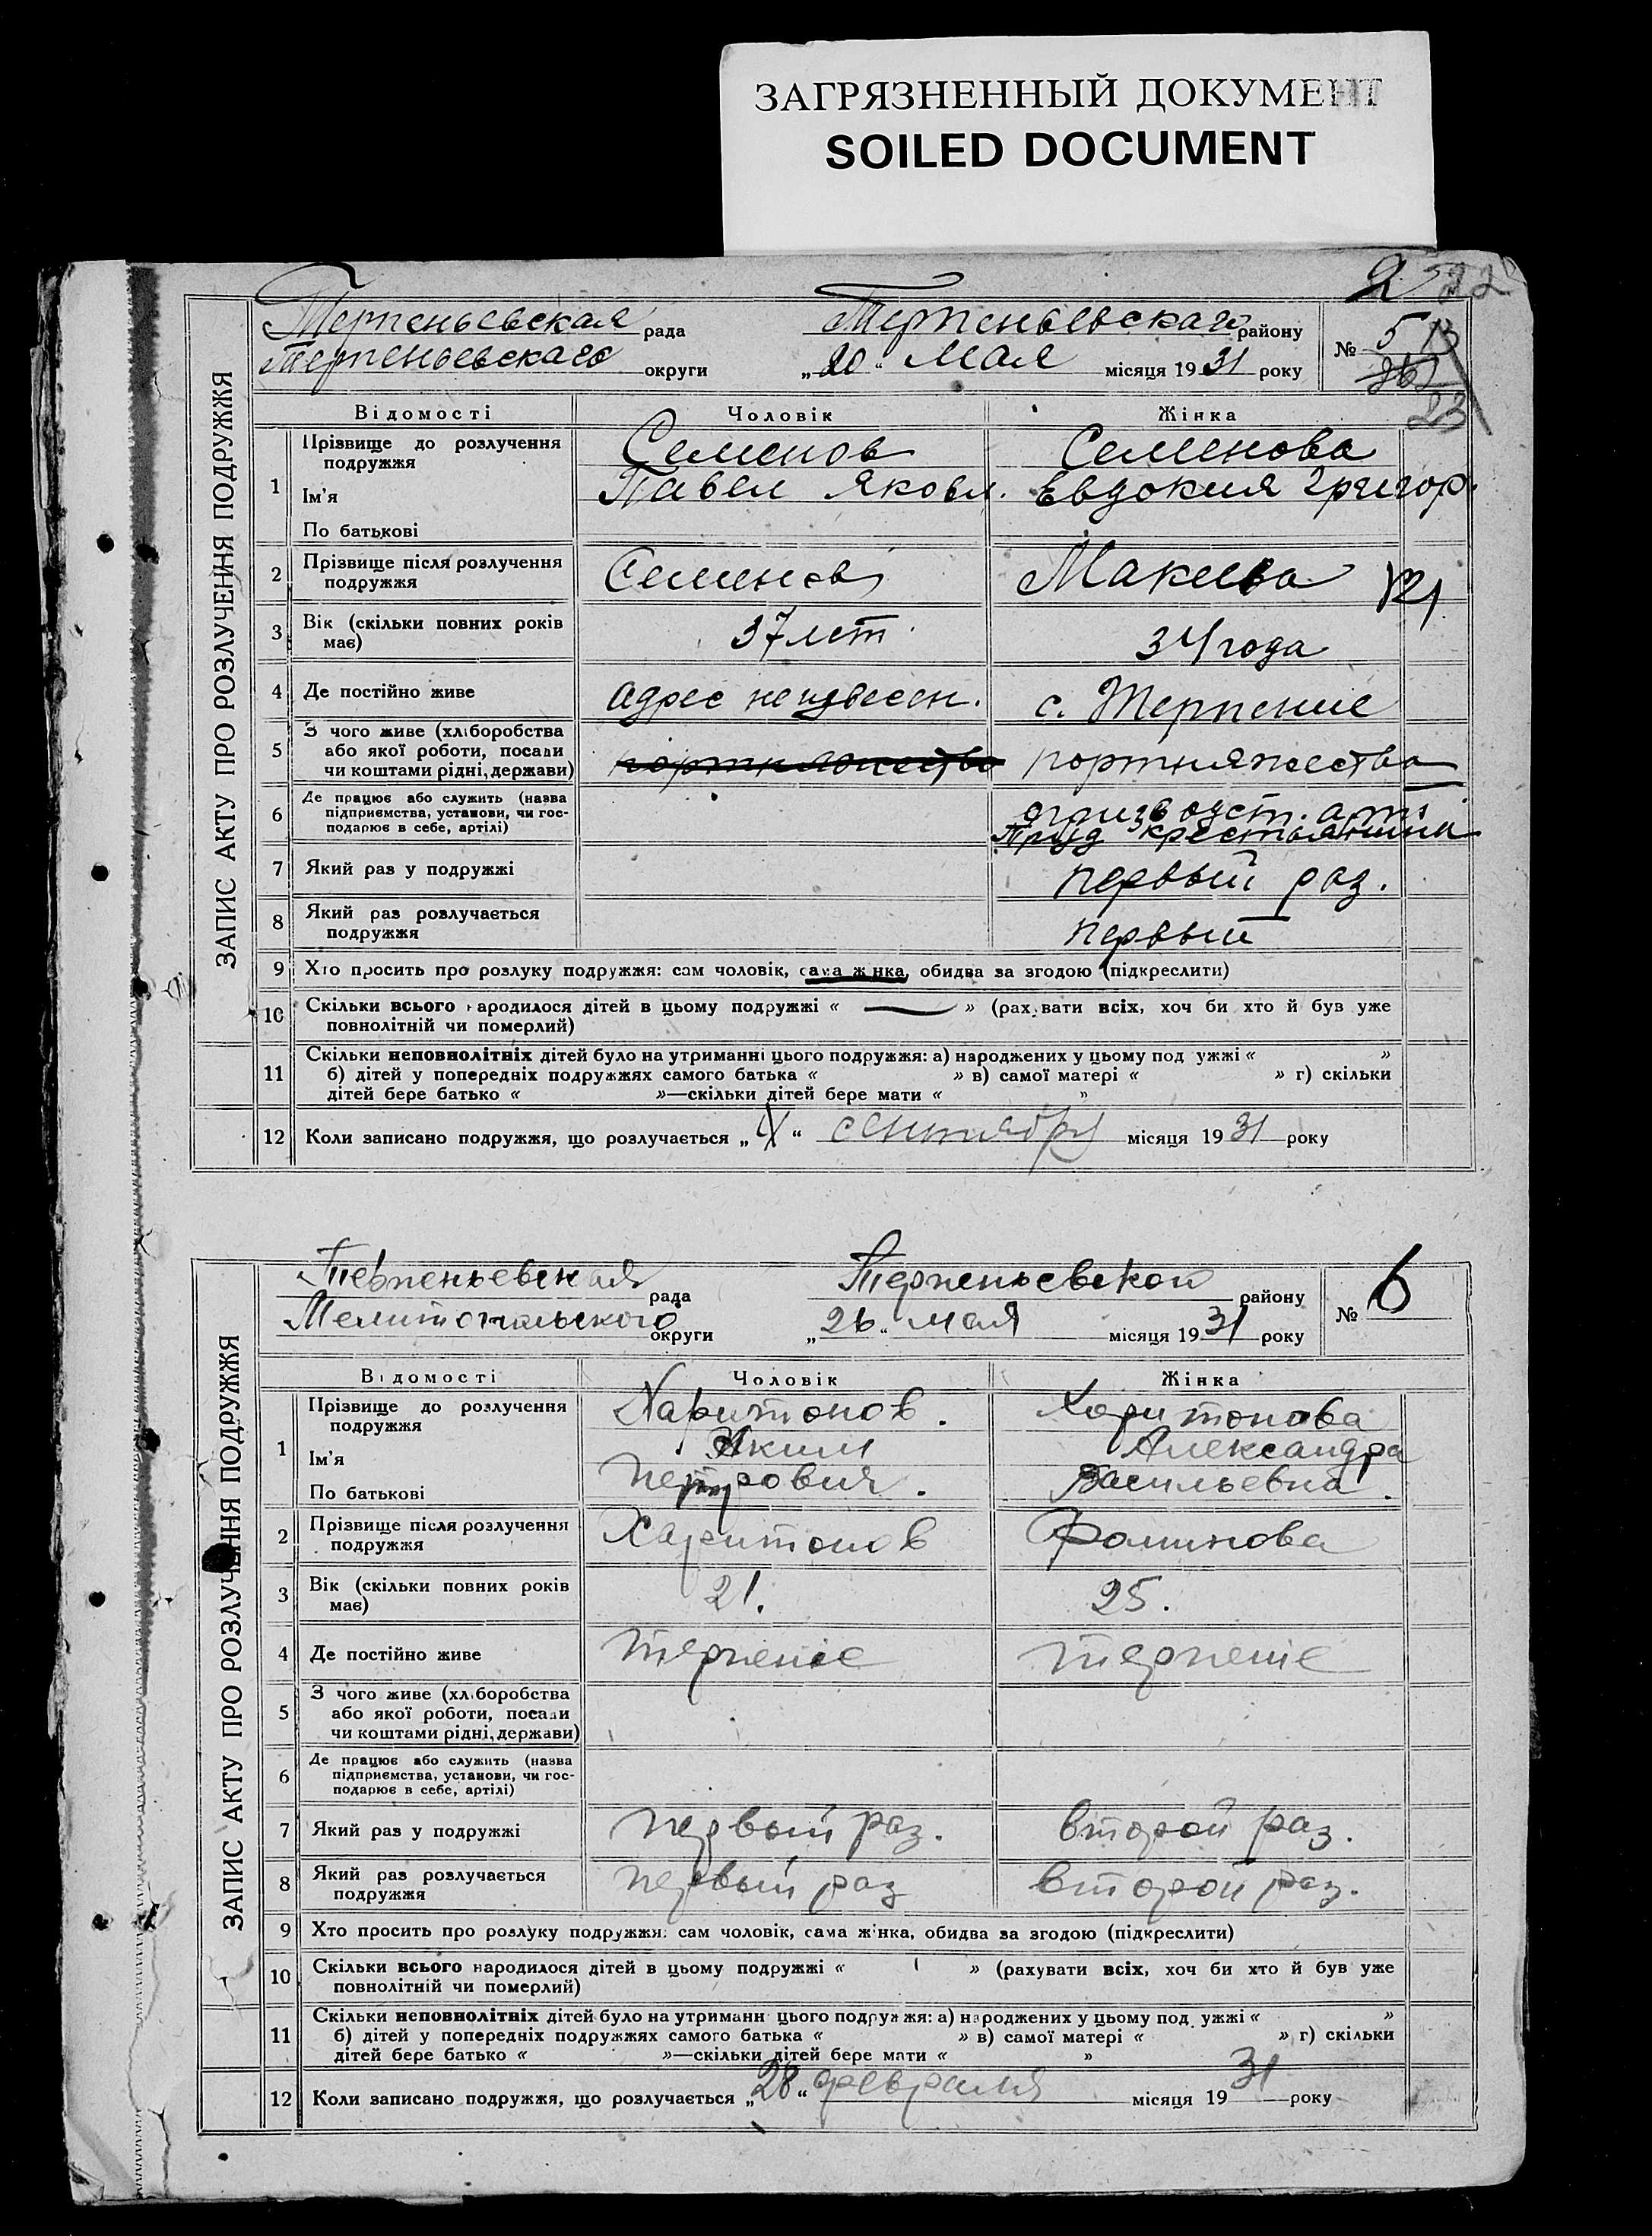 ЗАГРЯЗНЕННЫЙ ДОКУМЕНТ
SOILED DOCUMENT
2 22
ЗАПИС АКТУ ПРО РОЗЛУЧЕННЯ ПОДРУЖЖЯ
Терпеньевская рада Терпеньевскаго району
Терпеньевскаго округи „20“ Мая місяця 1931 року № 5 13
23
Відомості Чоловік Жінка
1 Прізвище до розлучення подружжя Семенов Семенова
Ім'я Павел Яковл. Евдокия Григор.
По батькові
2 Прізвище після розлучення подружжя Семенов Макеева
3 Вік (скільки повних років має) 37 лет. 34 года
4 Де постійно живе адрес неизвесен. с. Терпение
5 З чого живе (хліборобства або якої роботи, посади чи коштами рідні, держави) портняжество портняжества
6 Де працює або служить (назва підприємства, установи, чи господарює в себе, артілі) производст. арт.
Труд крестьянина
7 Який раз у подружжі первый раз.
8 Який раз розлучається подружжя первый
9 Хто просить про розлуку подружжя: сам чоловік, сама жінка, обидва за згодою (підкреслити)
10 Скільки всього народилося дітей в цьому подружжі « — » (рахувати всіх, хоч би хто й був уже
повнолітній чи померлий)
11 Скільки неповнолітніх дітей було на утриманні цього подружжя: а) народжених у цьому подружжі « »
б) дітей у попередніх подружжях самого батька « » в) самої матері « » г) скільки
дітей бере батько « »—скільки дітей бере мати « »
12 Коли записано подружжя, що розлучається „ “ сентября місяця 1931 року
ЗАПИС АКТУ ПРО РОЗЛУЧЕННЯ ПОДРУЖЖЯ
Терпеньевская рада Терпеньевской району
Мелитопальского округи „26“ мая місяця 1931 року № 6
Відомості Чоловік Жінка
1 Прізвище до розлучення подружжя Харитонов. Харитонова
Ім'я Аким Александра
По батькові Петрович. Васильевна.
2 Прізвище після розлучення подружжя Харитонов Фоминова
3 Вік (скільки повних років має) 21. 25.
4 Де постійно живе терпеніе терпеніе
5 З чого живе (хліборобства або якої роботи, посади чи коштами рідні, держави)
6 Де працює або служить (назва підприємства, установи, чи господарює в себе, артілі)
7 Який раз у подружжі первый раз. второй раз.
8 Який раз розлучається подружжя первый раз второй раз.
9 Хто просить про розлуку подружжя: сам чоловік, сама жінка, обидва за згодою (підкреслити)
10 Скільки всього народилося дітей в цьому подружжі « » (рахувати всіх, хоч би хто й був уже
повнолітній чи померлий)
11 Скільки неповнолітніх дітей було на утриманні цього подружжя: а) народжених у цьому подружжі « »
б) дітей у попередніх подружжях самого батька « » в) самої матері « » г) скільки
дітей бере батько « »—скільки дітей бере мати « »
12 Коли записано подружжя, що розлучається „28“ февраля місяця 1931 року